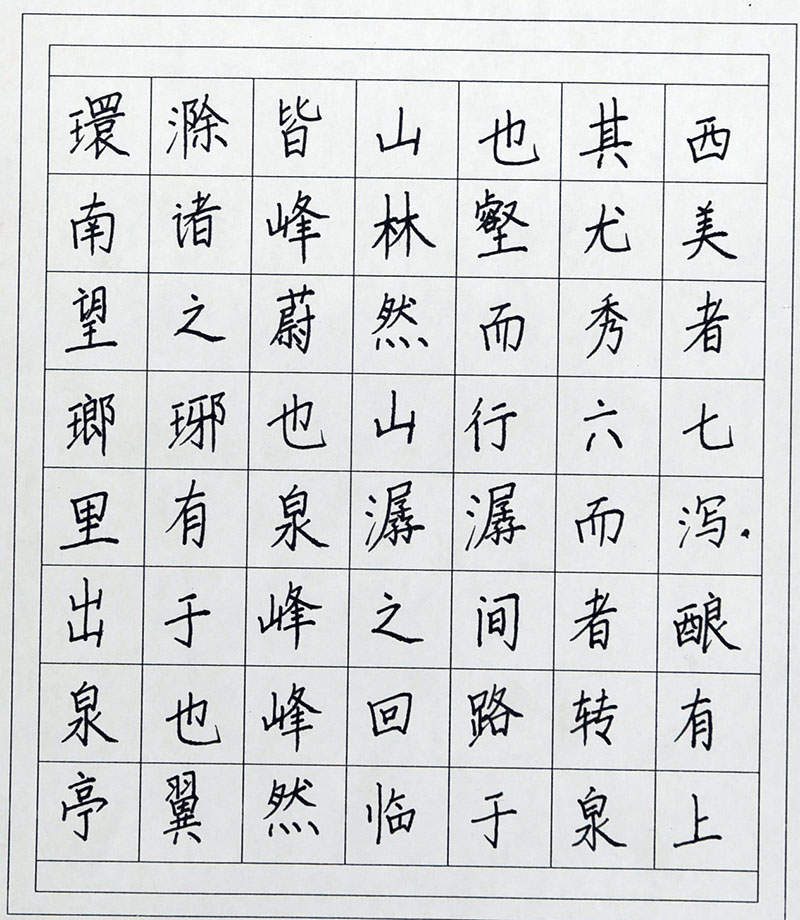 環滁皆山也其西
南诸峰林壑尤美
望之蔚然而秀者
瑯琊也山行六七
里有泉潺潺而泻
出于峰之间者酿
泉也峰回路转有
亭翼然临于泉上